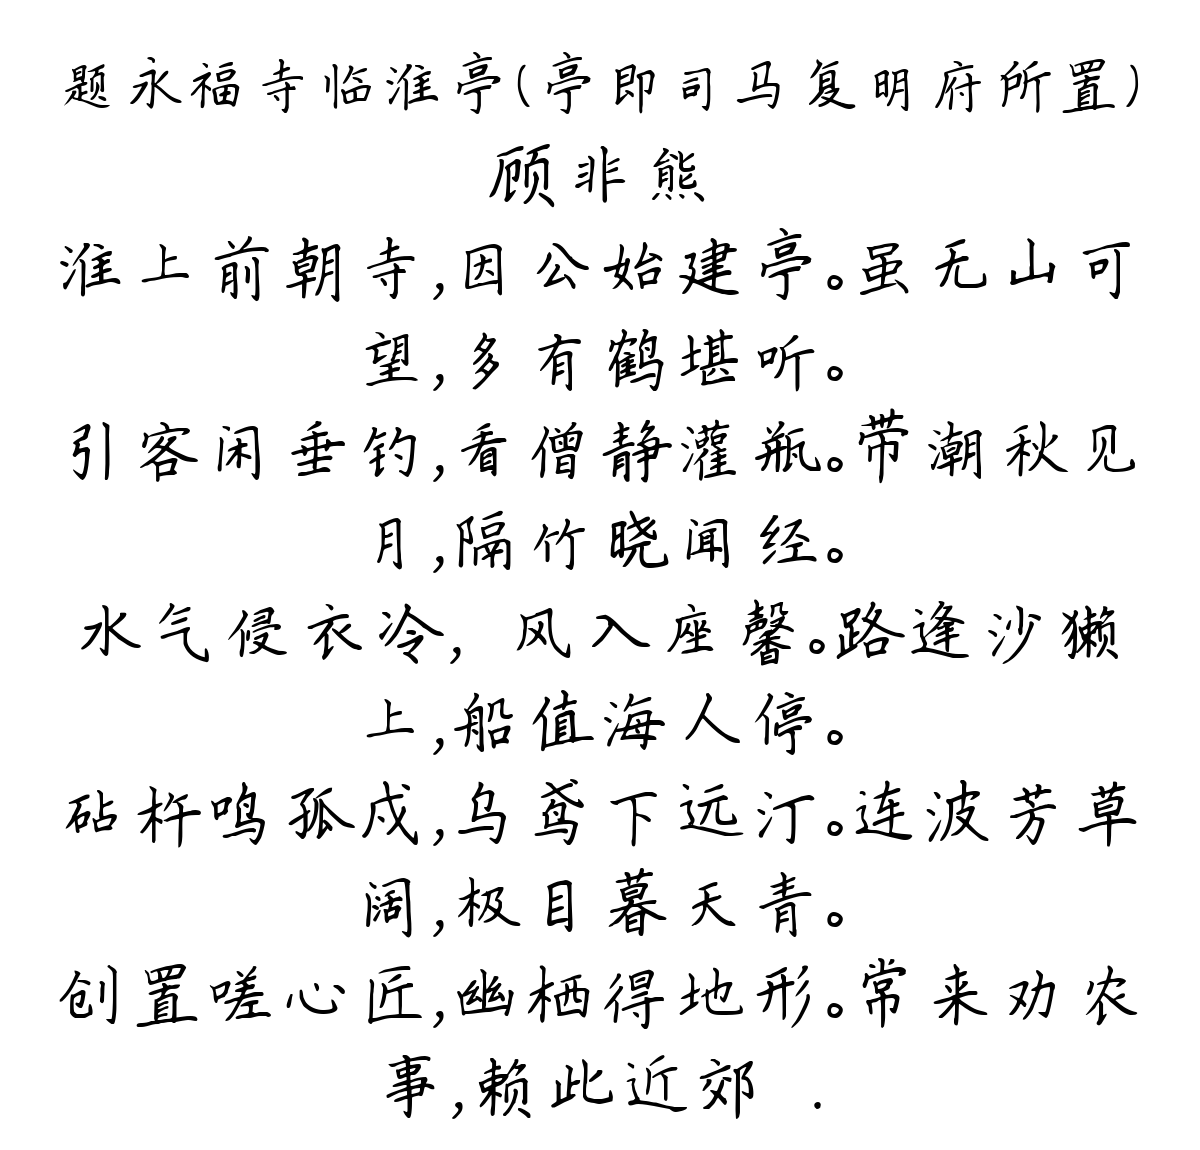 题永福寺临淮亭(亭即司马复明府所置)
顾非熊
淮上前朝寺,因公始建亭。虽无山可
望,多有鹤堪听。
引客闲垂钓,看僧静灌瓶。带潮秋见
月,隔竹晓闻经。
水气侵衣冷, 风入座馨。路逢沙獭
上,船值海人停。
砧杵鸣孤戍,乌鸢下远汀。连波芳草
阔,极目暮天青。
创置嗟心匠,幽栖得地形。常来劝农
事,赖此近郊 .